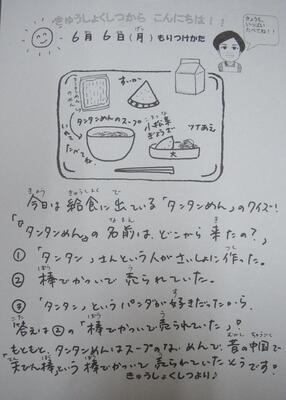 きゅうしょくしつから こんにちは！！
6月6日(月) もりつけかた
きょうも、
いっぱい
たべてね！！
すいか
タンタンめんのスープ
小松菜
ぎょうざ
ツナあえ
大
いれて
たべてね。
今日は給食に出ている「タンタンめん」のクイズ！
「タンタンめん」の名前は、どこから来たの？
① 「タンタン」さんという人がさいしょに作った。
② 棒でかついで売られていた。
③ 「タンタン」というパンダが好きだったから
答えは②の「棒でかついで売られていた」？
もともと、タンタンめんはスープのないめんで、昔の中国で
てんびん棒という棒でかついで売られていたそうです！
きゅうしょくしつより♪